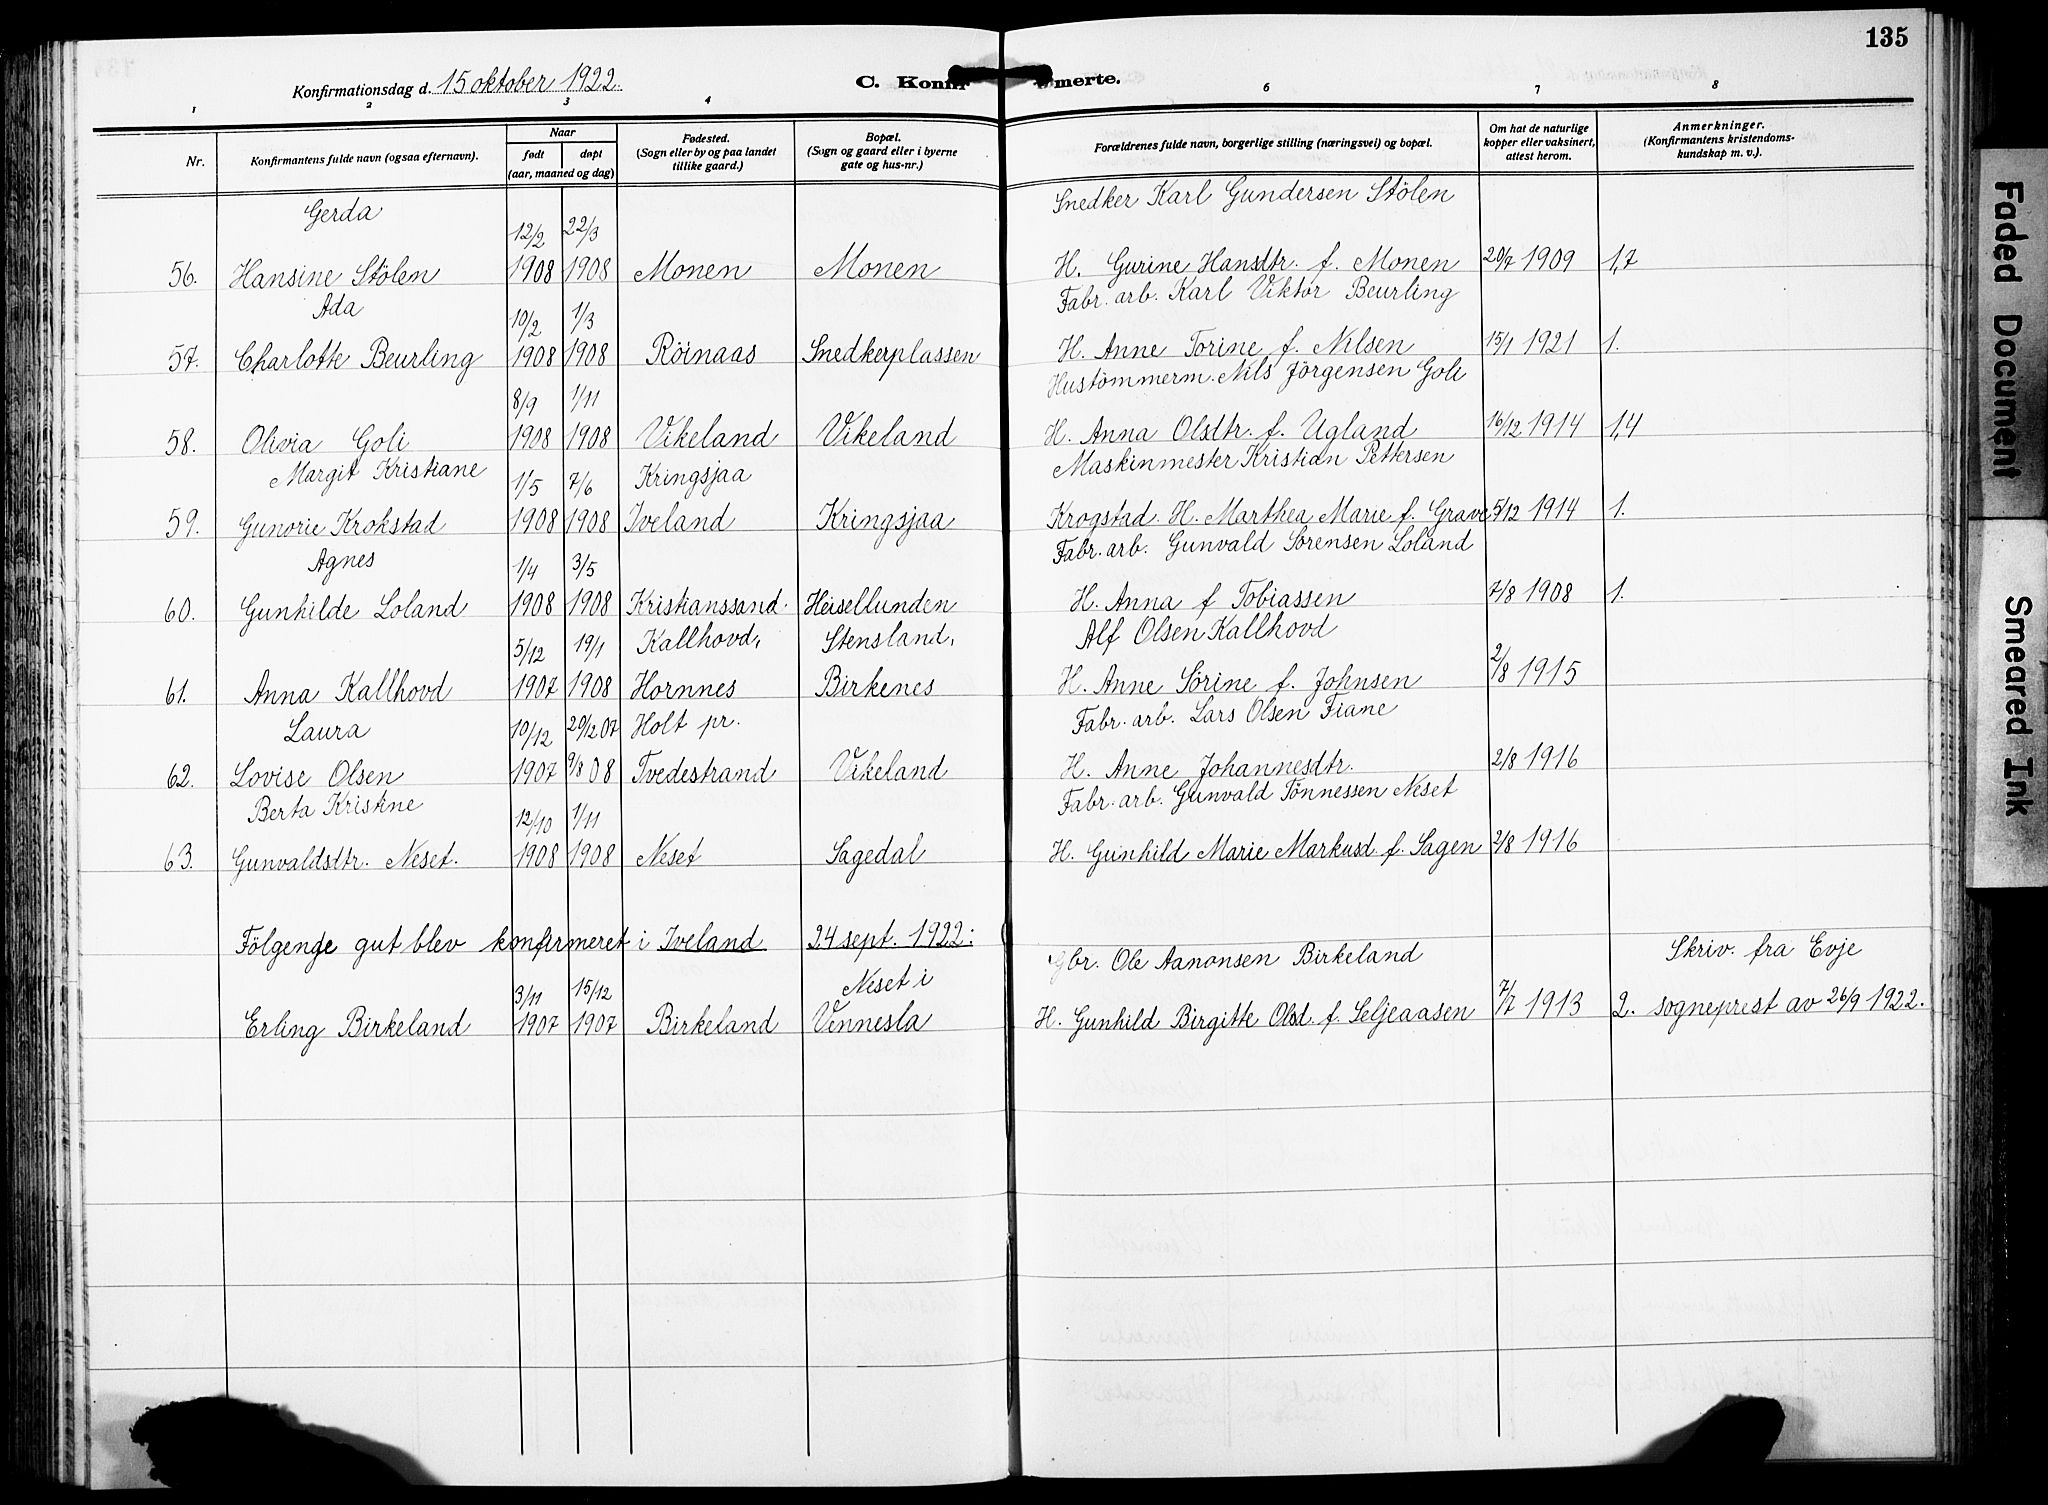 135
Konfirmationsdag d. 15 oktober 1922.
C. Konfir merte.
1 2 3 4 6 7 8
Nr.
Konfirmantens fulde navn (ogsaa efternavn).
Naar
født døpt
(aar, maaned og dag)
Fødested.
(Sogn eller by og paa landet
tillike gaard.)
Bopæl.
(Sogn og gaard eller i byerne
gate og hus-nr.)
Forældrenes fulde navn, borgerlige stilling (næringsvei) og bopæl.
Om hat de naturlige
kopper eller vaksinert,
attest herom.
Anmerkninger.
(Konfirmantens kristendoms-
kundskap m. v.).
Gerda 12/2 22/3 Snedker Karl Gundersen Stölen
56. Hansine Stölen 1908 1908 Monen Monen H. Gurine Hansdtr. f. Monen 20/7 1909 1,7
Ada 10/2 1/3 Fabr. arb. Karl Viktor Beurling
57. Charlotte Beurling 1908 1908 Röinaas Snedkerplassen H. Anne Torine f. Nilsen 15/1 1921 1.
8/9 1/11 Hustömmerm. Nils Jörgensen Goli
58. Olivia Goli 1908 1908 Vikeland Vikeland H. Anna Olsdtr. f. Ugland 16/12 1914 1,4
Margit Kristiane 1/5 7/6 Kringsjaa Maskinmester Kristian Pettersen
59. Gunorie Krokstad 1908 1908 Iveland Kringsjaa Krogstad. H. Marthea Marie f. Grave 5/12 1914 1.
Agnes 1/4 3/5 Fabr. arb. Gunvald Sörensen Loland
60. Gunhilde Loland 1908 1908 Kristianssand. Heisellunden H. Anna f Tobiassen 7/8 1908 1.
5/12 19/1 Kallhovd, Stensland, Alf Olsen Kallhovd
61. Anna Kallhovd 1907 1908 Hornnes Birkenes H. Anne Sörine f. Johnsen 2/8 1915
Laura 10/12 20/12 07 Holt pr. Fabr. arb. Lars Olsen Fiane
62. Lovise Olsen 1907 9/8 08 Tvedestrand Vikeland H. Anne Johannesdtr. 2/8 1916
Berta Kristine 12/10 1/11 Fabr. arb. Gunvald Tönnessen Neset
63. Gunvaldsdtr. Neset. 1908 1908 Neset Sagedal H. Gunhild Marie Markusd. f. Sagen 2/8 1916
Fölgende gut blev konfirmeret i Iveland 24 sept. 1922:
3/11 15/12 Neset i Gbr. Ole Aanonsen Birkeland Skriv. fra Evje
Erling Birkeland 1907 1907 Birkeland Vennesla H. Gunhild Birgitte Olsd. f. Seljeaasen 7/7 1913 2. sogneprest av 26/9 1922.
Faded Document
Smeared Ink